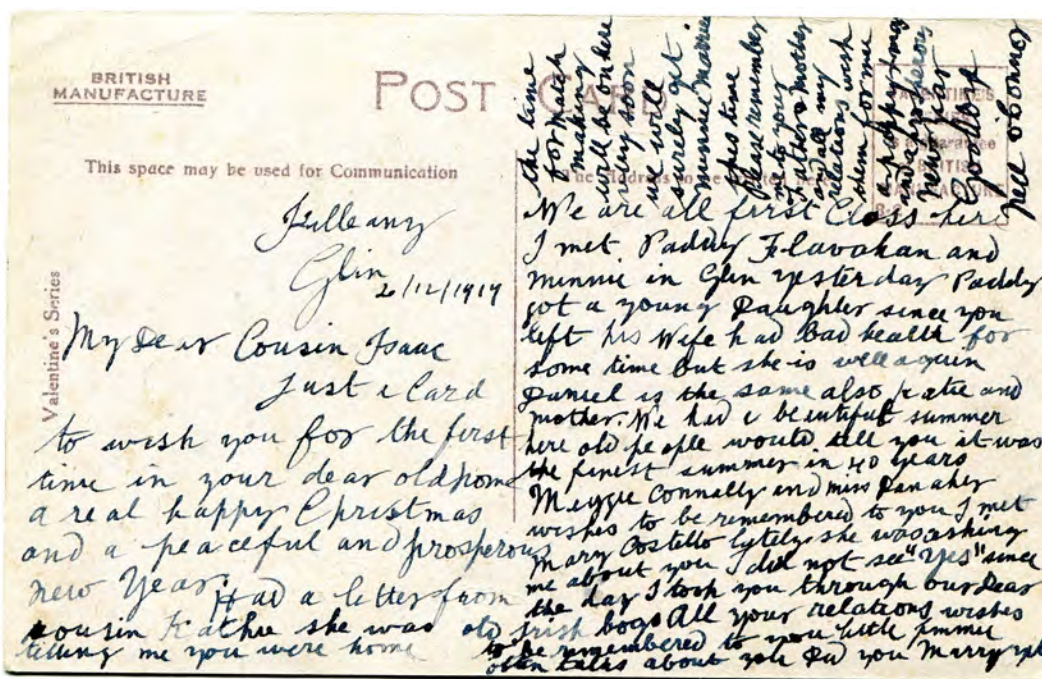 BRITISH
MANUFACTURE
POST CARD
This space may be used for Communication
Valentine's Series
Killeany
Glin
2/12/1919
My Dear Cousin Isaac
Just a Card
to wish you for the first
time in your dear old home
a real happy Christmas
and a peaceful and prosperous
new Year. Had a letter from
cousin Kathie she was
telling me you were home
We are all first Class here
I met Paddy Flavahan and
minnie in Glin yesterday Paddy
got a young Daughter since you
left his Wife had bad health for
some time but she is well again
Daniel is the same also Katie and
mother. We had a beautiful summer
here old people would tell you it was
the finest summer in 40 years
Meggie Connally and miss Danaher
wishes to be remembered to you I met
Mary Costello lytely she was asking
me about you I did not see "Yes" since
the day I took you through our dear
old Irish bogs All your relations wishes
to be remembered to you little
often talks about you Did you Marry yet
the time
for match
making
will be on here
very soon
we will
surely get
minnie married
this time
please remember
me to your
father & mother
and all my
relations wish
them for me
a happy xmas
and a prosperous
new year
Goodbye
nell oConnor